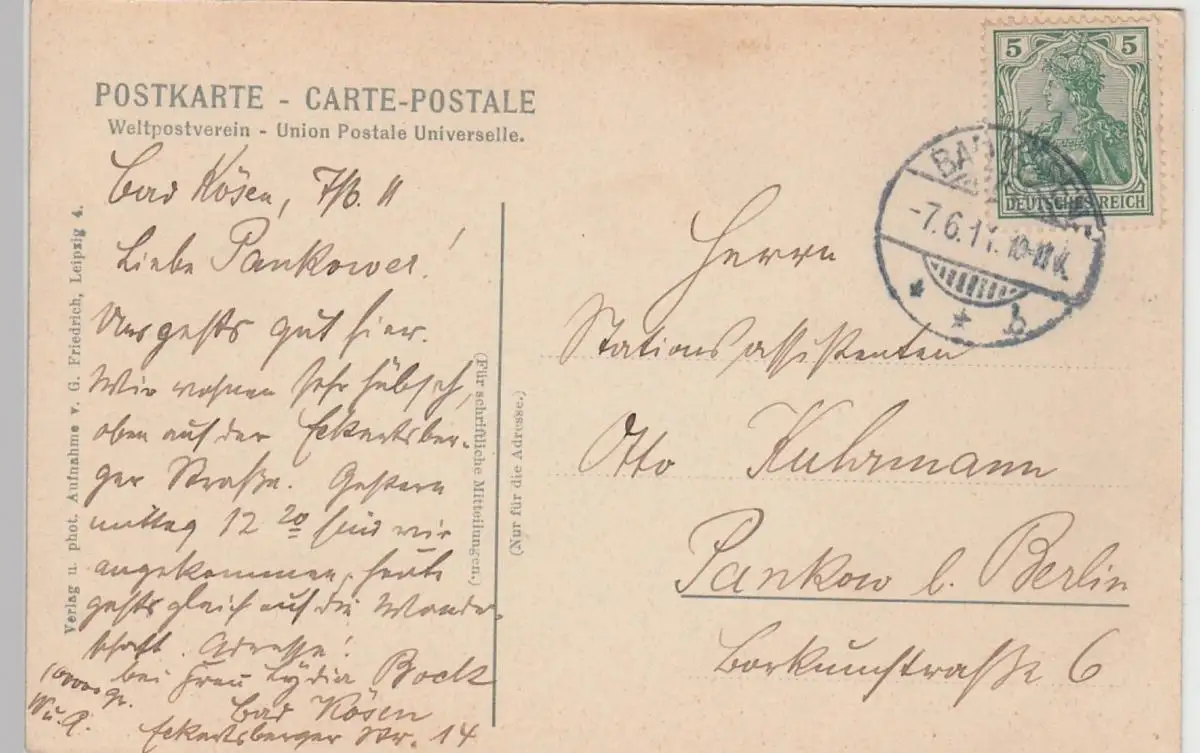 POSTKARTE - CARTE-POSTALE
Weltpostverein - Union Postale Universelle.
Bad Kösen, 7/6. 11
Liebe Pankower!
Uns gehts gut hier.
Wir wohnen sehr hübsch,
oben auf der Eckartsber-
ger Straße. Gestern
mittag 12 20 sind wir
angekommen, heute
gehts gleich auf die Wander-
schaft. Adresse:
bei Frau Lydia Bock
Bad Kösen
Eckartsberger Str. 14
1000000 Gr.
W u. P.
Verlag u. phot. Aufnahme v. G. Friedrich, Leipzig 4.
(Für schriftliche Mitteilungen.)
(Nur für die Adresse.)
5 5
DEUTSCHES REICH
BAD KÖSEN
-7.6.11. 10-11 V.
* * b
Herrn
Stationsassistenten
Otto Kuhrmann
Pankow b. Berlin
Borkumstraße 6